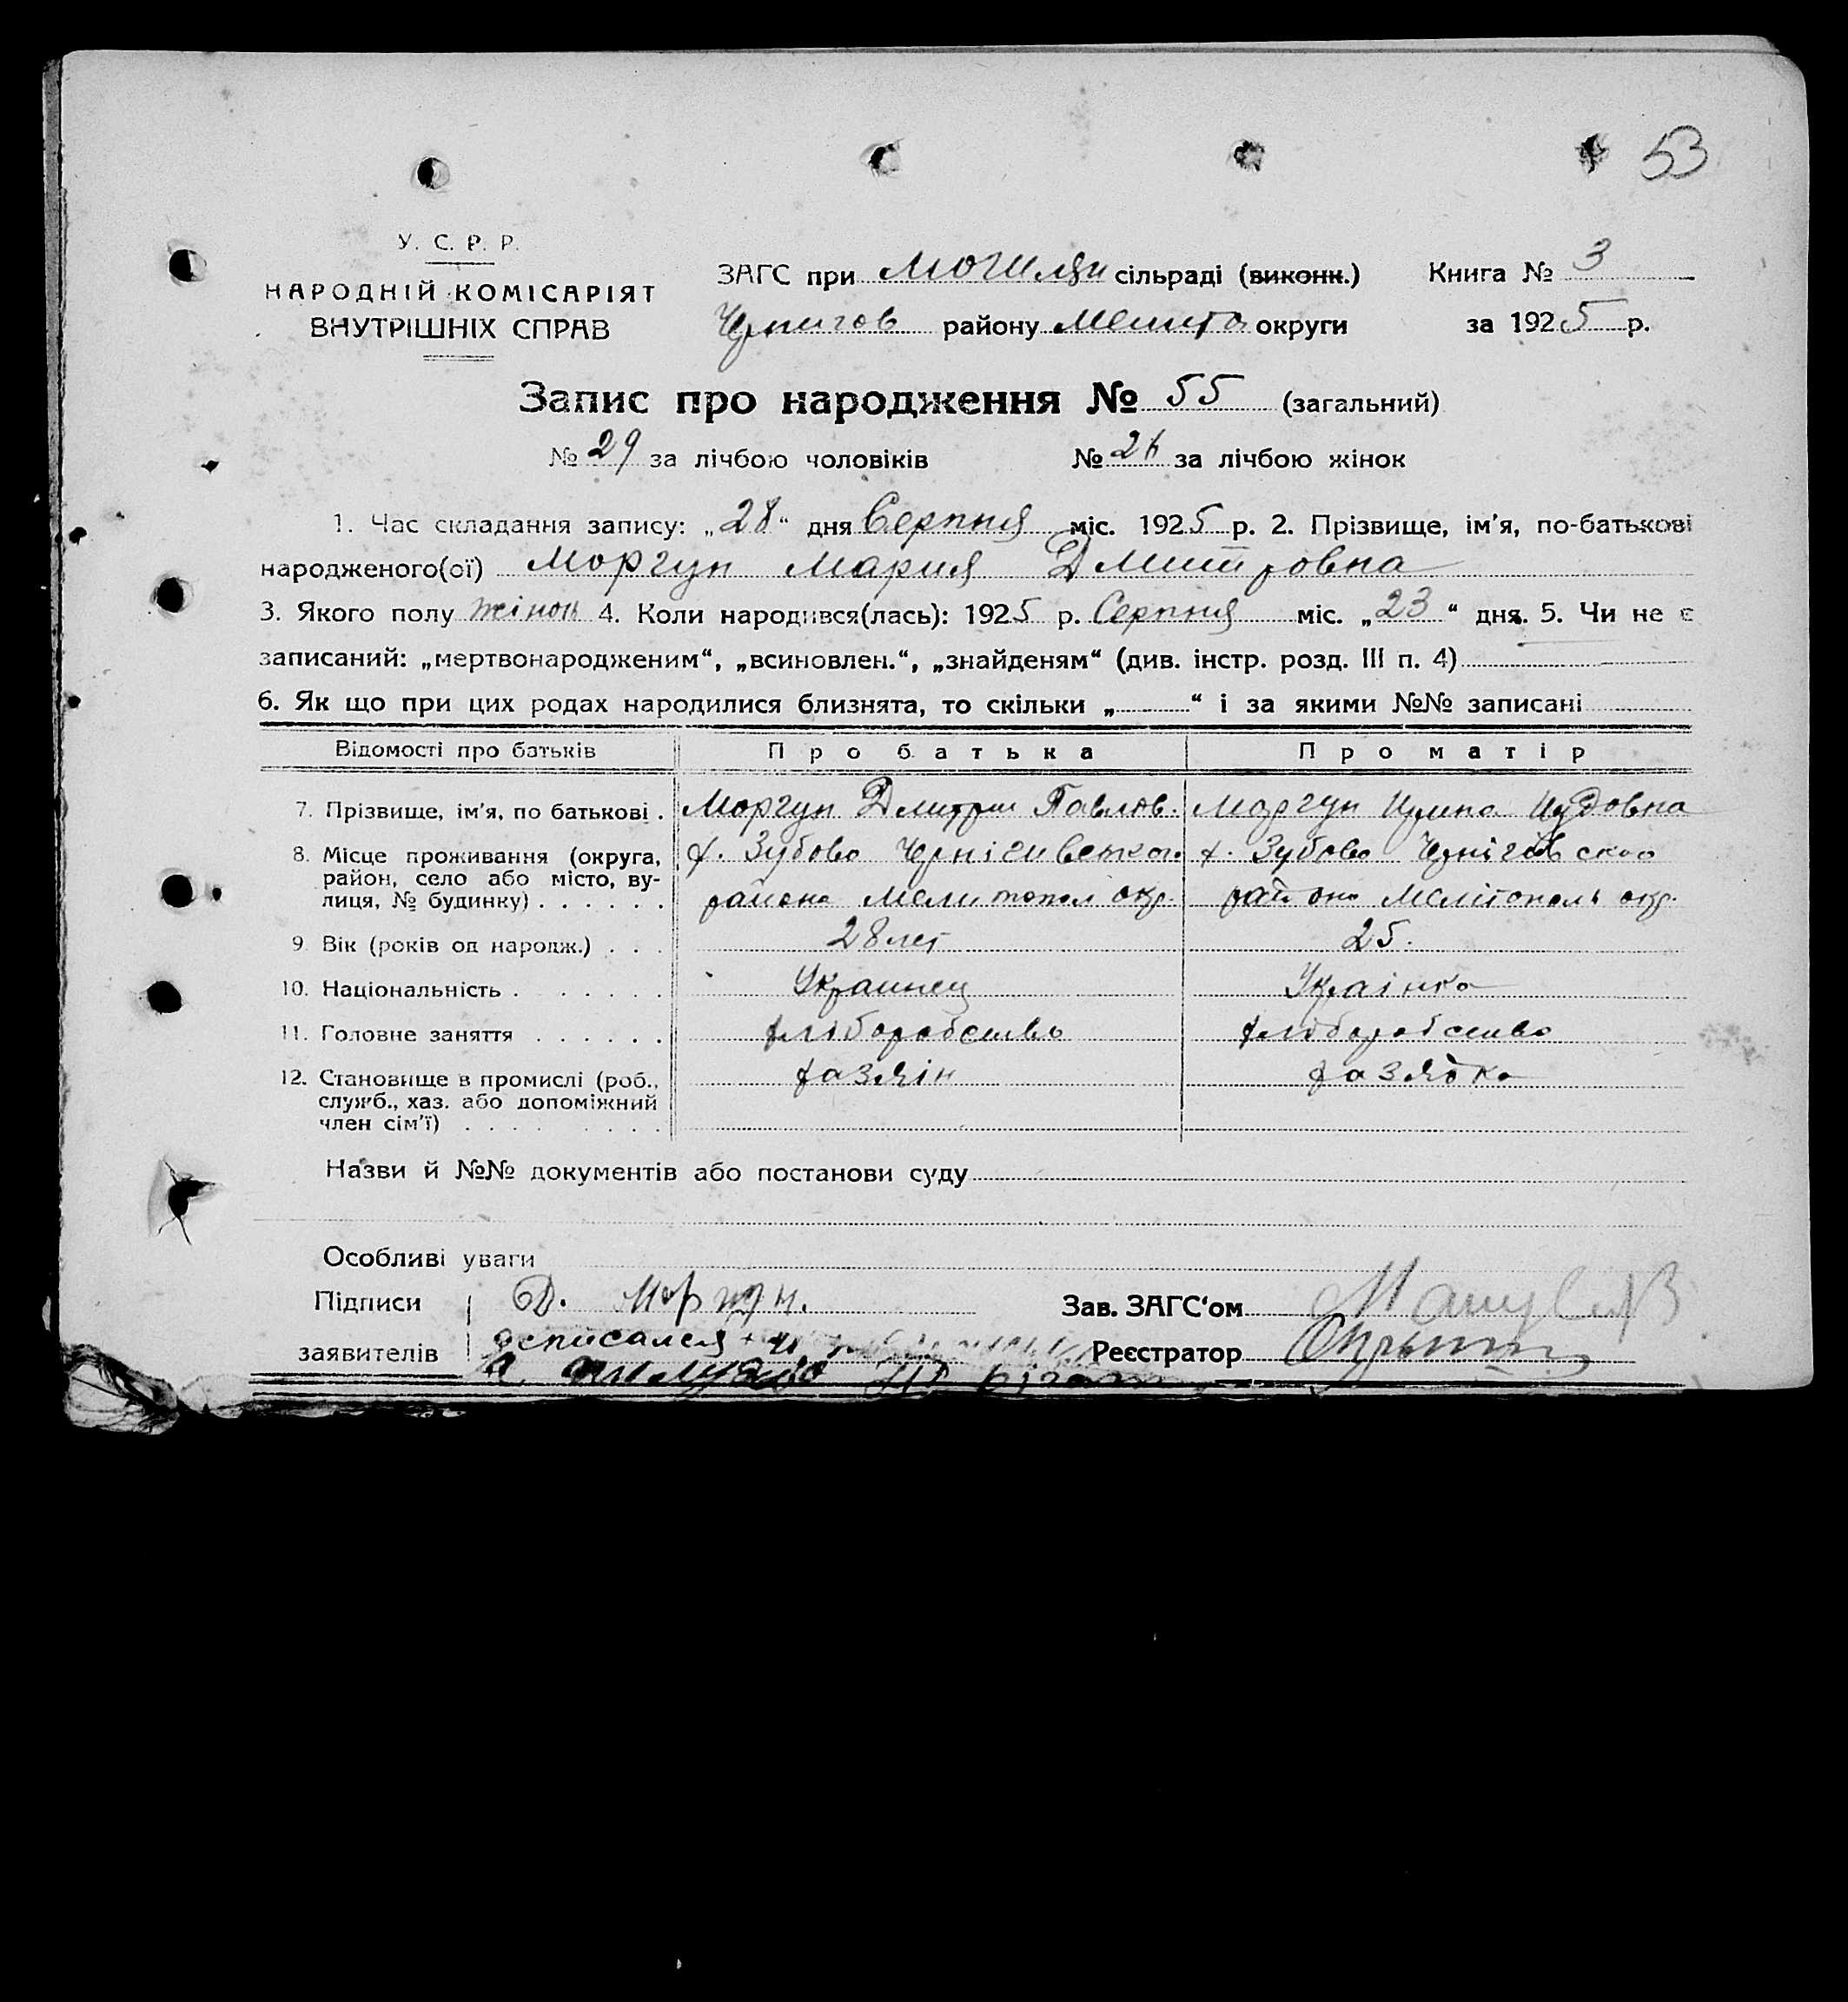 53
У. С. Р. Р.
НАРОДНІЙ КОМІСАРІЯТ
ВНУТРІШНІХ СПРАВ
ЗАГС при Могилян сільраді (виконк.) Книга № 3
Чернигов району Мелито округи за 1925 р.
Запис про народження № 55 (загальний)
№ 29 за лічбою чоловіків № 26 за лічбою жінок
1. Час складання запису: „28“ дня Серпня міс. 1925 р. 2. Прізвище, ім'я, по-батькові
народженого(ої) Моргун Мария Дмитровна
3. Якого полу жінок 4. Коли народився(лась): 1925 р. Серпня міс. „23“ дня. 5. Чи не є
записаний: „мертвонародженим“, „всиновлен.“, „знайденям“ (див. інстр. розд. III п. 4)
6. Як що при цих родах народилися близнята, то скільки „ “ і за якими №№ записані
Відомості про батьків Про батька Про матір
7. Прізвище, ім'я, по батькові . Моргун Дмитрии Павлов. Моргун
8. Місце проживання (округа, х. Зубово х. Зубово Чернігівского
район, село або місто, ву- района Мелитопол окр. района Мелітополь окр.
лиця, № будинку) . . . . . .
9. Вік (років од народж.) . . . 28 лет 25.
10. Національність . . . . . . . Украинец Украінка
11. Головне заняття . . . . . . хліборобство хліборобство
12. Становище в промислі (роб., хазяін хазяйка
служб., хаз. або допоміжний
член сім'ї) . . . . . . . .
Назви й №№ документів або постанови суду
Особливі уваги
Підписи Д. Моргун. Зав. ЗАГС‘ом
заявителів Реєстратор